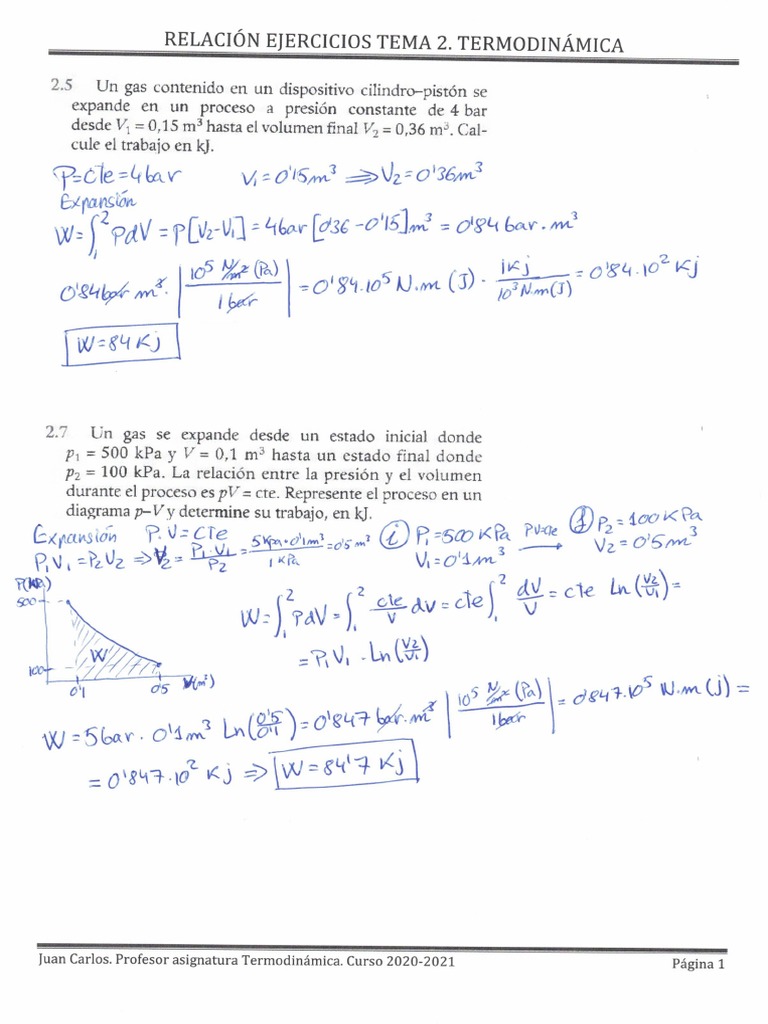 RELACIÓN EJERCICIOS TEMA 2. TERMODINÁMICA
2.5 Un gas contenido en un dispositivo cilindro–pistón se
expande en un proceso a presión constante de 4 bar
desde V₁ = 0,15 m³ hasta el volumen final V₂ = 0,36 m³. Cal-
cule el trabajo en kJ.
P=cte=4bar V₁=0'15m³ ⟹ V₂=0'36m³
Expansión
W=∫₁² PdV = P[V₂-V₁] = 4bar[0'36-0'15]m³ = 0'84 bar·m³
0'84 bar m³ · |10⁵ N/m² (Pa) / 1 bar| = 0'84·10⁵ N·m (J) · 1Kj / 10³ N·m(J) = 0'84·10² Kj
W=84 Kj
2.7 Un gas se expande desde un estado inicial donde
p₁ = 500 kPa y V = 0,1 m³ hasta un estado final donde
p₂ = 100 kPa. La relación entre la presión y el volumen
durante el proceso es pV = cte. Represente el proceso en un
diagrama p–V y determine su trabajo, en kJ.
Expansión P·V=Cte ① P₁=500KPa PV=cte ② P₂=100KPa
P₁V₁=P₂V₂ ⟹ V₂= P₁·V₁/P₂ = 5Kpa·0'1m³/1KPa = 0'5m³ V₁=0'1m³ ⟶ V₂=0'5m³
P(KPa)
500
100
W
0'1 0'5 V(m³)
W=∫₁² PdV = ∫₁² cte/V dV = cte∫₁² dV/V = cte Ln(V₂/V₁) =
= P₁V₁ · Ln(V₂/V₁)
W=5bar · 0'1m³ Ln(0'5/0'1) = 0'847 bar·m³ |10⁵ N/m² (Pa) / 1bar| = 0'847·10⁵ N·m (j) =
= 0'847·10² Kj ⟹ W=84'7 Kj
Juan Carlos. Profesor asignatura Termodinámica. Curso 2020-2021
Página 1